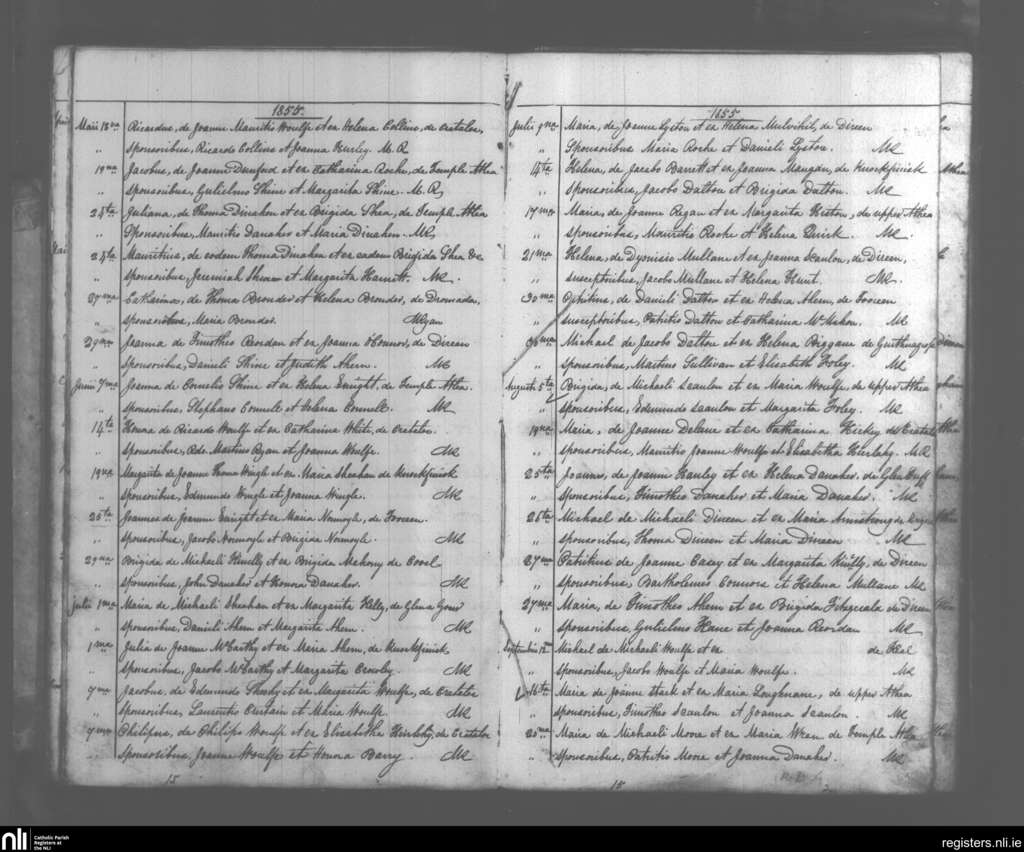 1855.
Maii 18na Ricardus, de Joanne Mauritii Woulfe et ex Helena Collins, de Cratalos,
" Sponsoribus, Ricardo Collins et Joanna Hurley. M. R
19na Jacobus, de Joanne Dunford et ex Catharina Roche, de Temple Athea
" Sponsoribus, Gulielmo Shine et Margarita Shine. M. R,
24ta Juliana, de Thoma Dinahen et ex Brigida Shea, de Temple Athea
" Sponsoribus, Mauritio Danaher et Maria Dinahen. MR,
24ta Mauritius, de eodem Thoma Dinahen et ex eadem Brigida Shea &c
" Sponsoribus, Jeremiah Shine et Margarita Harnett. MR.
27ma Catharina, de Thoma Brouder et Helena Brouder, de Dromada,
" Sponsoribus, Maria Brouder.
29na Joanna de Timotheo Reordan et ex Joanna O'Connor, de Direen
" Sponsoribus, Danieli Shine et Judith Ahern. MR
Junii 7ma Joanna de Cornelio Shine et ex Helena Enright, de Temple Athea.
" Sponsoribus, Stephano Connell et Helena Connell. MR
14ta Honna de Ricardo Woulfe et ex Catharina White, de Cratalos.
" Sponsoribus, Rdo. Martino Ryan et Joanna Woulfe. MR
19na Margarita de Joanne Thoma Wingle et ex Maria Sheahan de Knockfinisk
" Sponsoribus, Edmundo Wingle et Joanna Wingle. MR
25ta Joannes de Joanne Enright et ex Maria Normoyle, de Tooreen.
" Sponsoribus, Jacobo Normoyle et Brigida Normoyle. MR
29na Brigida de Michaeli Kinelly et ex Brigida Mahony de Coool
" Sponsoribus, John Danaher et Honora Danaher. MR
Julii 1ma Maria de Michaeli Sheahan et ex Margarita Kelly, de Glena Gour
" Sponsoribus, Danieli Ahern et Margarita Ahern. MR
1ma Julia de Joanne McCarthy et ex Maria Ahern, de Knockfinisk
" Sponsoribus, Jacobo McCarthy et Margarita Crowley. MR
7ma Jacobus, de Edmundo Sheehy et ex Margarita Woulfe, de Cratalos
" Sponsoribus, Laurentio Curtain et Maria Woulfe. MR
7ma Philipus, de Philipo Woulfe et ex Elisabetha Hierlehy, de Cratalos
" Sponsoribus, Joanne Woulfe et Honora Barry. MR
15
1855
Julii 9na Maria, de Joanne Lyston et ex Helena Mulvihil, de Direen
" Sponsoribus Maria Roche et Danieli Lyston. MR
14ta Helena, de Jacobo Barrett et ex Joanna Mangan, de Knockfinisk
" Sponsoribus, Jacobo Dalton et Brigida Dalton. MR
17ma Maria, de Joanne Regan et ex Margarita Histon, de upper Athea
" Sponsoribus, Mauritio Roche et Helena Quirk. MR.
21ma Helena, de Dyonisio Mullane et ex Joanna Scanlon, de Direen,
" susceptoribus, Jacobo Mullane et Helena Hunt. MR.
30ma Patritius, de Danieli Dalton et ex Helena Ahern, de Tooreen
" susceptoribus, Patritio Dalton et Catharina McMahon. MR
Michael de Jacobo Dalton et ex Helena Biggane de
" Sponsoribus, Martino Sullivan et Elisabeth Foley. MR
Augusti 5ta Brigida, de Michaeli Scanlon et ex Maria Woulfe, de upper Athea
" Sponsoribus, Edmundo Scanlon et Margarita Foley. MR
19na Maria, de Joanne Delane et ex Catharina Hickey de Cratalos
" Sponsoribus, Mauritio Joanne Woulfe et Elisabetha Hierlehy. M. R
25ta Joannes, de Joanne Hanley et ex Helena Danaher, de Glenduff
" Sponsoribus, Timotheo Danaher et Maria Danaher. MR
26ta Michael de Michaeli Dineen et ex Maria Armstrong de
" Sponsoribus, Thoma Dineen et Maria Dineen MR
27ma Patritius de Joanne Casey et ex Margarita Kielly, de Direen
" Sponsoribus, Bartholemeo Connors et Helena Mullane MR
27ma Maria, de Timotheo Ahern et ex Brigida Fitzgerald de Direen
" Sponsoribus, Gulielmo Hane et Joanna Reordan MR
Septembris 12ma Michael de Michaeli Woulfe et ex de Keel
" Sponsoribus, Jacobo Woulfe et Maria Woulfe. MR
16ta Maria de Joanne Hack et ex Maria Longenane, de upper Athea
" Sponsoribus, Timotheo Scanlon et Joanna Scanlon. MR
20ma Maria de Michaeli Moore et ex Maria Wren de Temple Athea
" Sponsoribus, Patritio Moore et Joanna Danaher. MR
15
nli
Catholic Parish
Registers at
the NLI
registers.nli.ie